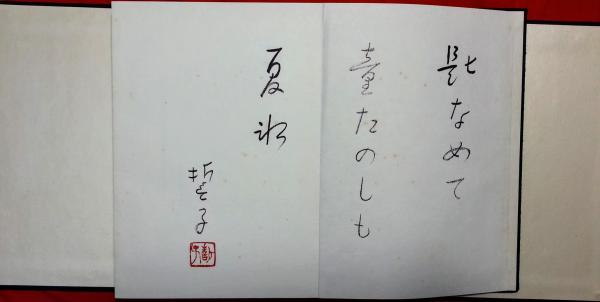 匙なめて
童たのしも
夏氷
誓子